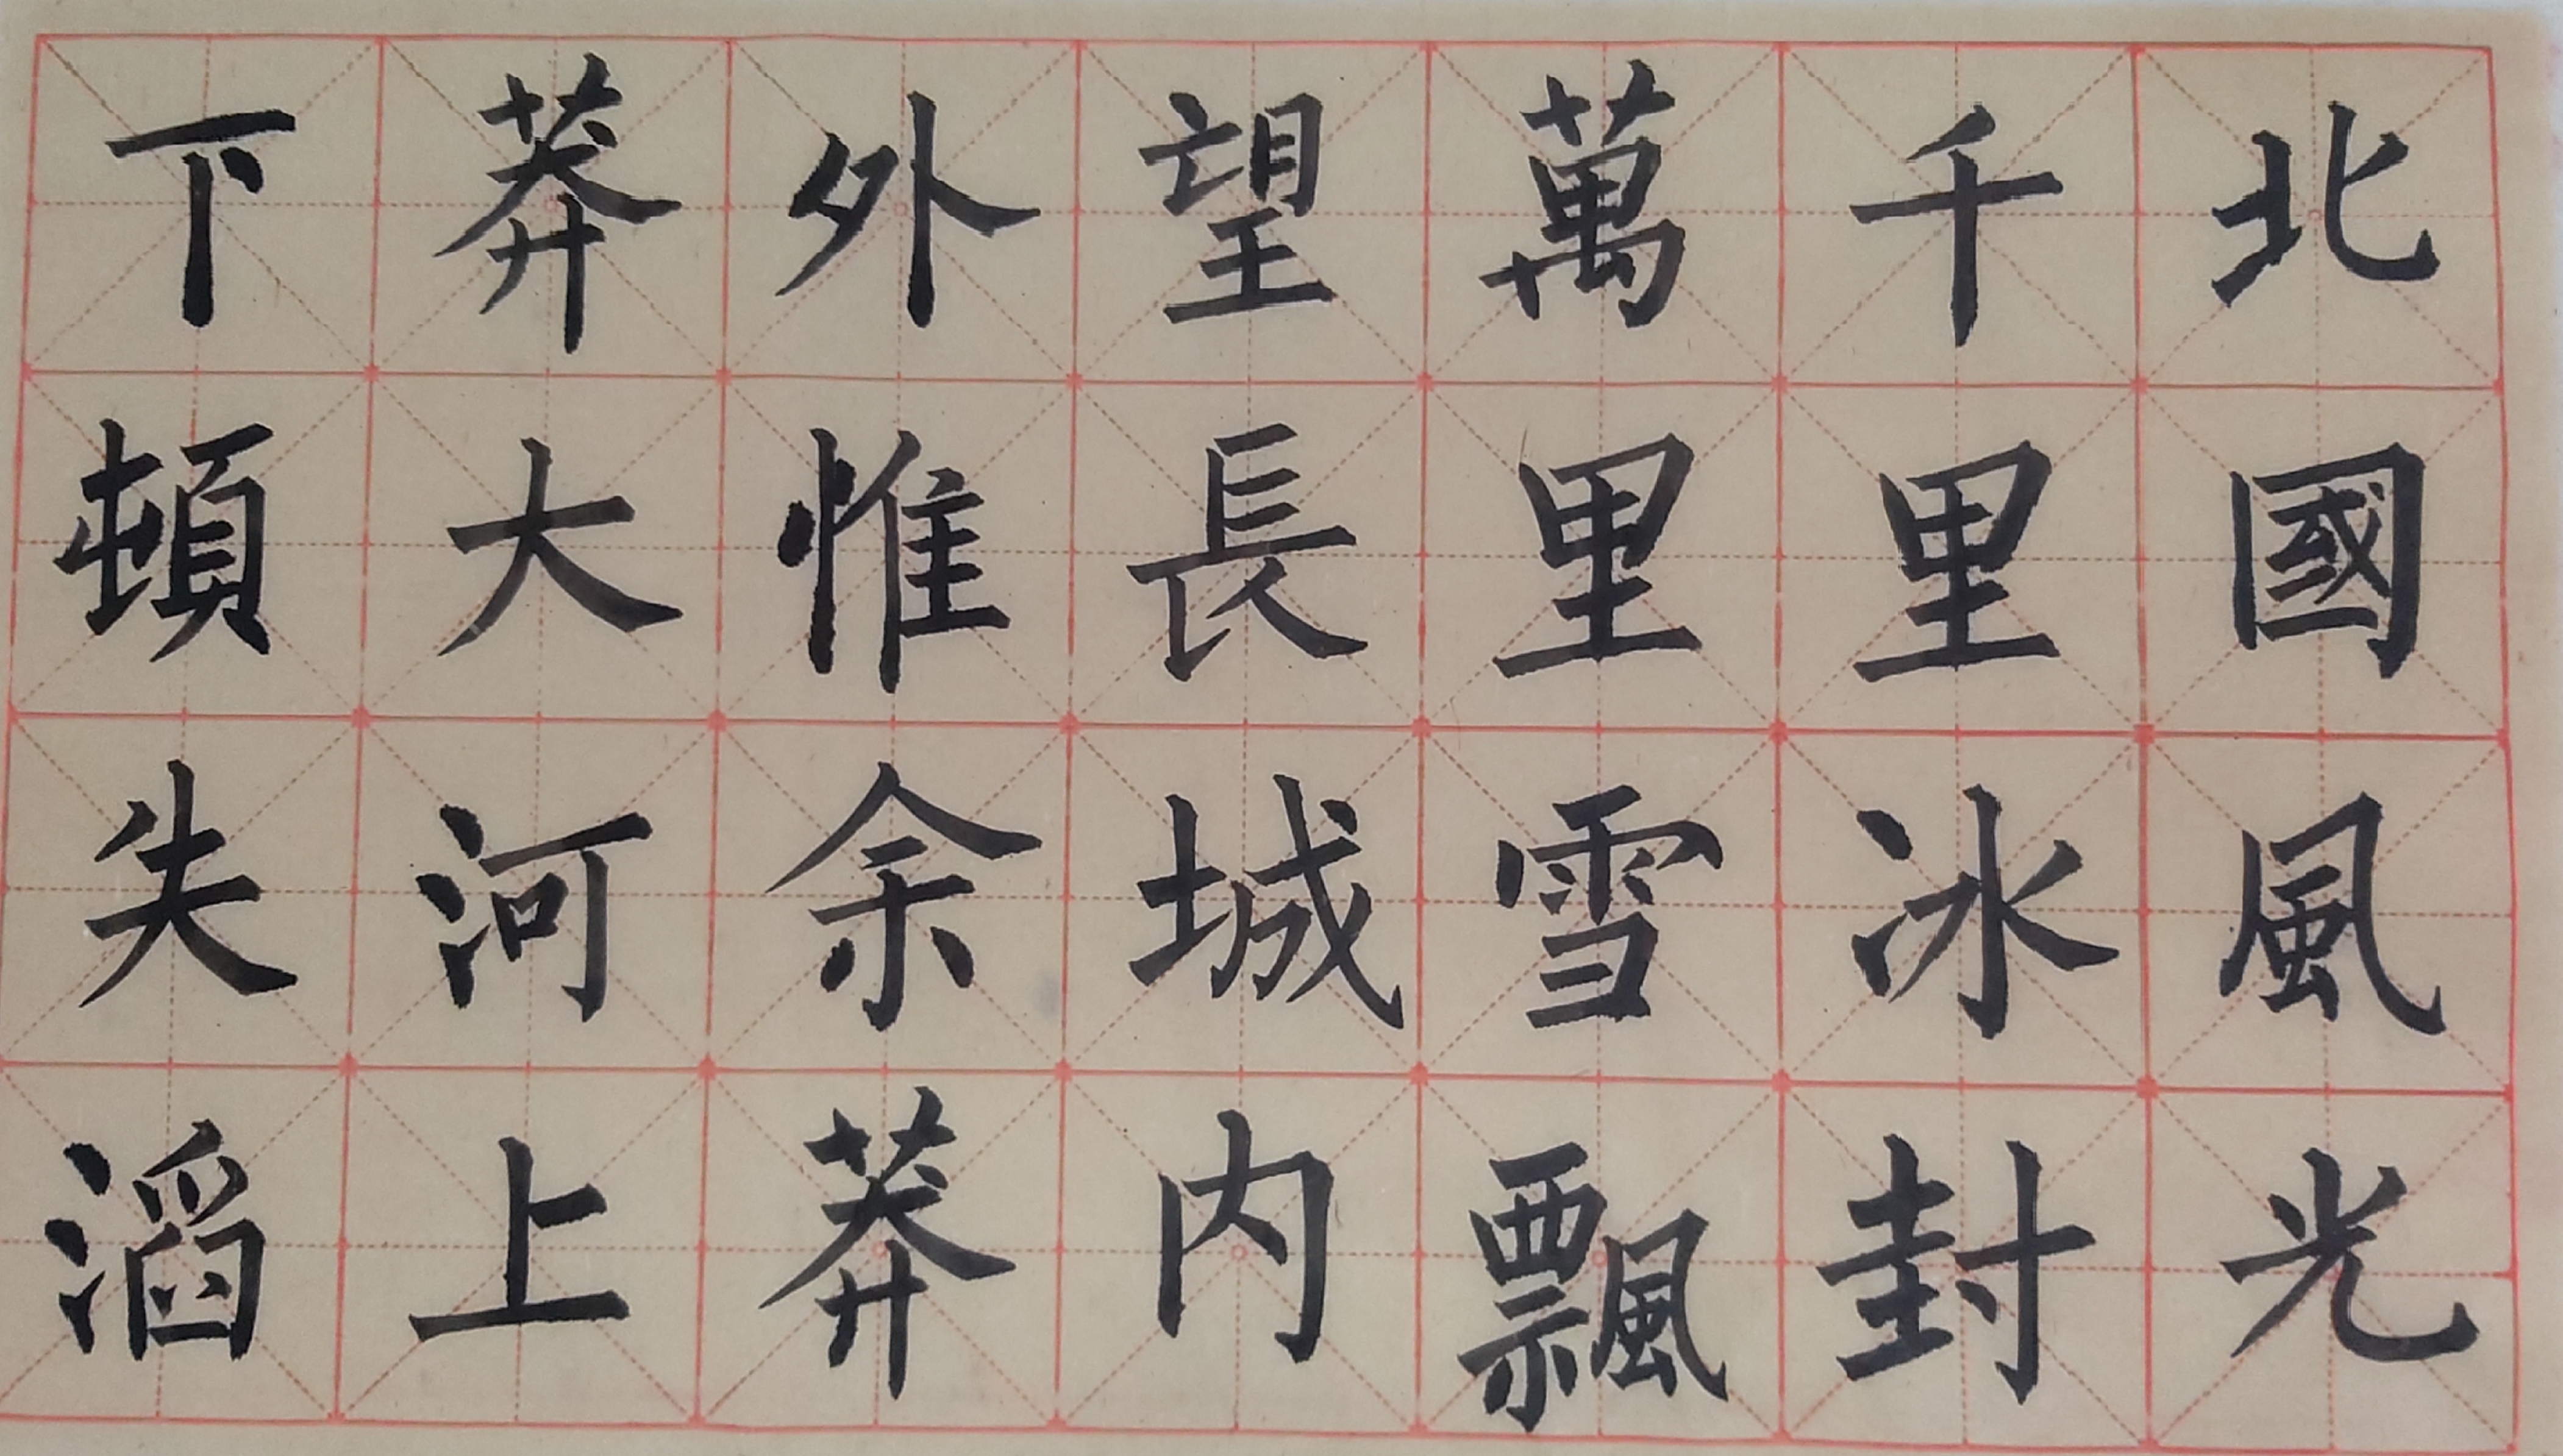 北國風光
千里冰封
萬里雪飄
望長城內
外惟余莽
莽大河上
下頓失滔